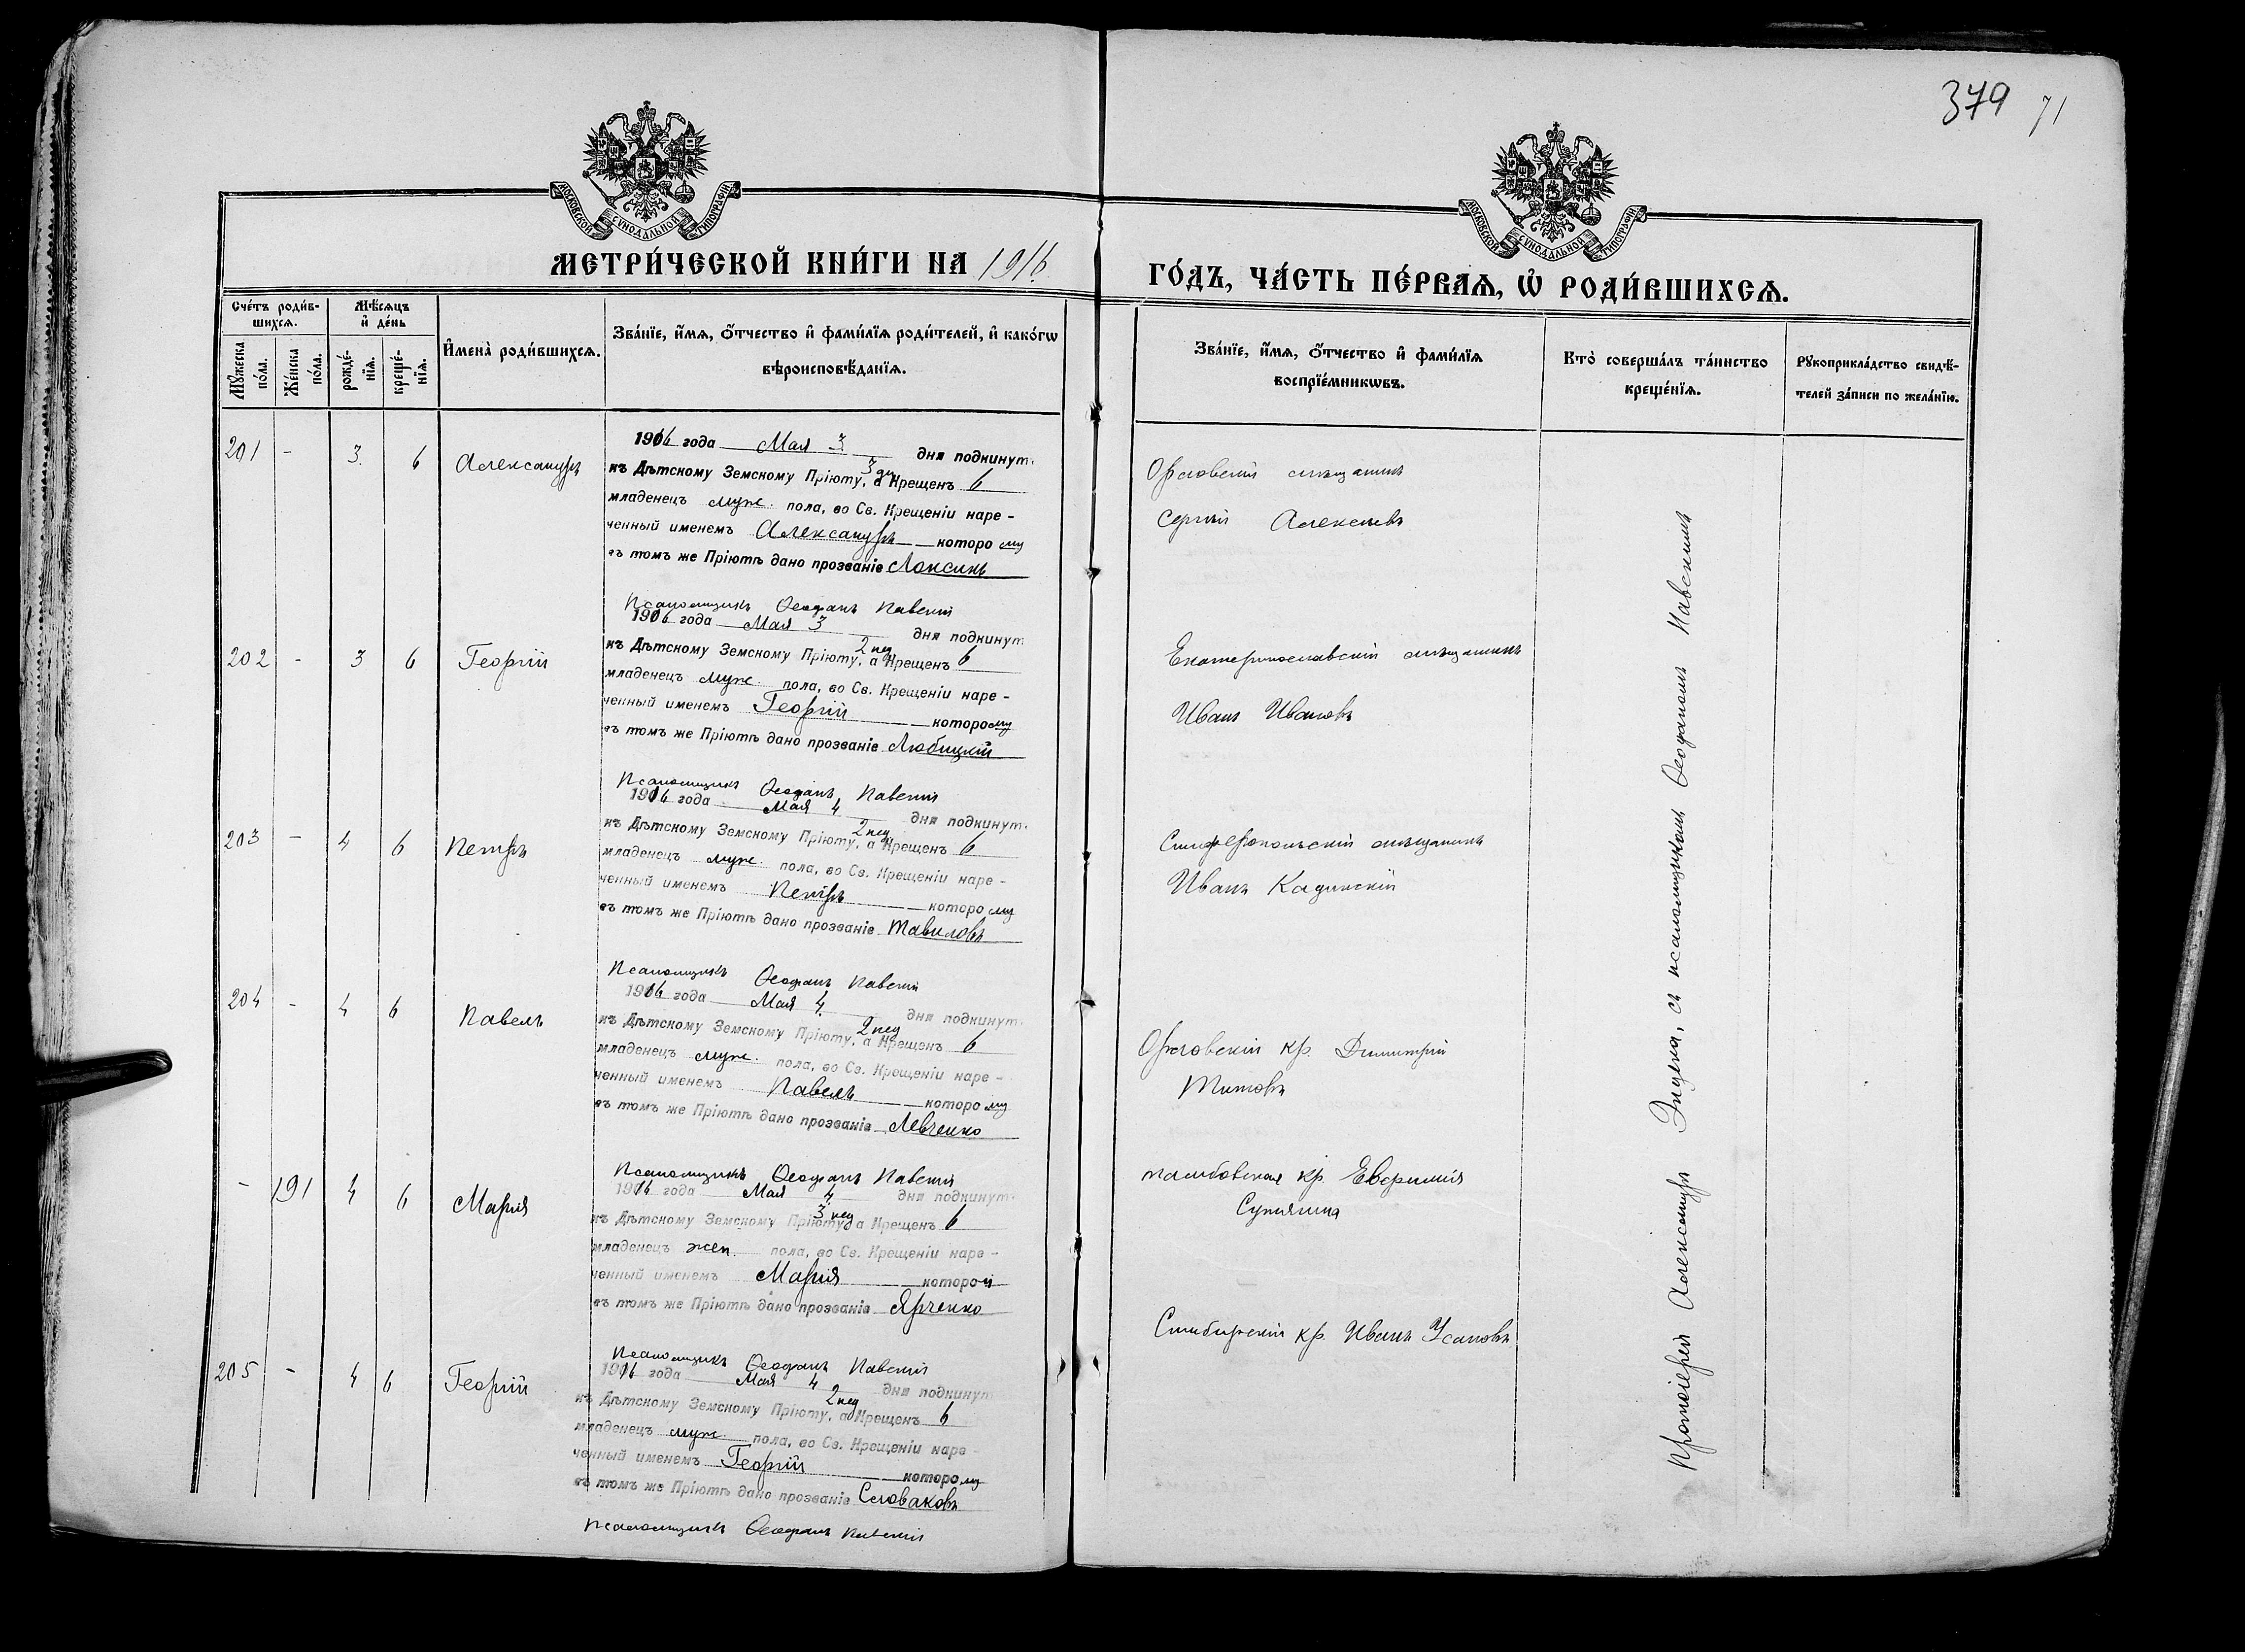 379 71
МОСКОВСКОЙ СѴНОДАЛЬНОЙ ТИПОГРАФІИ
МОСКОВСКОЙ СѴНОДАЛЬНОЙ ТИПОГРАФІИ
МЕТРИ́ЧЕСКОЙ КНИ́ГИ НА 1916 ГО́ДЪ, ЧА́СТЬ ПЕ́РВАѦ, Ѡ҆ РОДИ́ВШИХСѦ.
Сче́тъ роди́в-
шихсѧ.
Мꙋжеска по́ла.
Же́нска по́ла.
Мѣ́сѧцъ
и҆ де́нь
рожде́-
нїѧ.
креще́-
нїѧ.
И҆мена̀ роди́вшихсѧ.
Зва́нїе, и҆́мѧ, ѻ҆́тчество и҆ фами́лїѧ роди́телей, и҆ како́гѡ
вѣроисповѣ́данїѧ.
Зва́нїе, и҆́мѧ, ѻ҆́тчество и҆ фами́лїѧ
воспрїе́мникѡвъ.
Кто̀ соверша́лъ та́инство
креще́нїѧ.
Рꙋкоприкла́дство свидѣ́-
телей за́писи по жела́нїю.
201 - 3. 6 Александръ
1916 года Мая 3 дня подкинут.
къ Дѣтскому Земскому Пріюту, 3 дн а Крещенъ 6
младенецъ муж. пола, во Св. Крещеніи наре-
ченный именемъ Александръ которому
въ томъ же Пріютѣ дано прозваніе Локсинъ
Псаломщикъ Ѳеофанъ Павскій
Орловскій мѣщанинъ
Сергѣй Алексѣевъ
202 - 3 6 Георгій
1916 года Мая 3 дня подкинут
къ Дѣтскому Земскому Пріюту, 2 нед а Крещенъ 6
младенецъ муж. пола, во Св. Крещеніи наре-
ченный именемъ Георгій которому
въ томъ же Пріютѣ дано прозваніе Любицкій
Псаломщикъ Ѳеофанъ Павскій
Екатеринославскій мѣщанинъ
Иванъ Ивановъ
203 - 4 6 Петръ
1916 года Мая 4 дня подкинут.
къ Дѣтскому Земскому Пріюту, 2 нед а Крещенъ 6
младенецъ муж. пола, во Св. Крещеніи наре-
ченный именемъ Петръ которому
въ томъ же Пріютѣ дано прозваніе Тавиловъ
Псаломщикъ Ѳеофанъ Павскій
Симферопольскій мѣщанинъ
Иванъ Кадинскій
204 - 4 6 Павелъ
1916 года Мая 4. дня подкинут.
къ Дѣтскому Земскому Пріюту, 2 нед а Крещенъ 6
младенецъ муж. пола, во Св. Крещеніи наре-
ченный именемъ Павелъ которому
въ томъ же Пріютѣ дано прозваніе Левченко
Псаломщикъ Ѳеофанъ Павскій
Орловскій кр. Димитрій
Титовъ
- 191 4 6 Марія
1916 года Мая 4 дня подкинут.
къ Дѣтскому Земскому Пріюту, 3 нед а Крещенъ 6
младенецъ жен. пола, во Св. Крещеніи наре-
ченный именемъ Марія которой
въ томъ же Пріютѣ дано прозваніе Ярченко
Псаломщикъ Ѳеофанъ Павскій
Тамбовская кр. Евфимія
205 - 4 6 Георгій
1916 года Мая 4 дня подкинут
къ Дѣтскому Земскому Пріюту, 2 нед а Крещенъ 6
младенецъ муж. пола, во Св. Крещеніи наре
ченный именемъ Георгій которому
въ томъ же Пріютѣ дано прозваніе Словаковъ
Псаломщикъ Ѳеофанъ Павскій
Симбирскій кр. Иванъ Усановъ
Протоіерей Александръ Эндека, съ псаломщикомъ Ѳеофаномъ Павскимъ